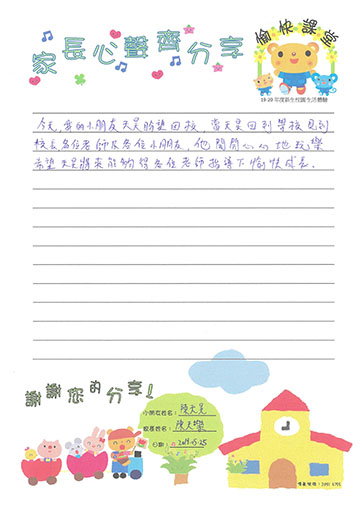 家長心聲齊分享
愉快課堂
19-20 年度新生校園生活體驗
今天,我的小朋友天昊盼望回校,當天昊回到學校見到
校長,各位老師及各位小朋友,他開開心心地玩樂
希望天昊將來能夠得各位老師指導下愉快成長。
謝謝您的分享!
小朋友姓名:陳天昊
家長姓名:
日期: